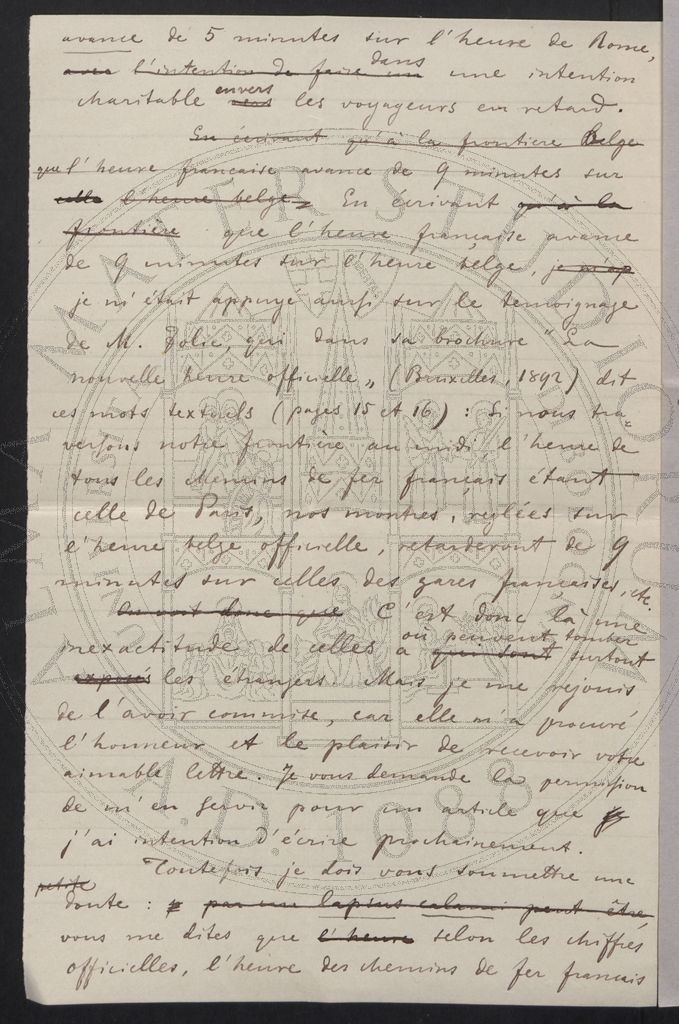 avance de 5 minutes sur l'heure de Rome,
avec l'intention de faire un dans une intention
charitable vers envers les voyageurs en retard.
En écrivant qu'à la frontière Belge
que l'heure française avance de 9 minutes sur
celle l'heure belge, En écrivant qu'à la
frontière que l'heure française avance
de 9 minutes sur l'heure belge, je m'ap
je m'étais appuyé aussi sur le temoignage
de M. Jolie, qui dans sa brochure "La
nouvelle heure officielle„ (Bruxelles, 1892) dit
ces mots textuels (pages 15 et 16) : Si nous tra=
versons notre frontière au midi, l'heure de
tous les chemins de fer français étant
celle de Paris, nos montres, réglées sur
l'heure belge officielle, retarderont de 9
minutes sur celles des gares françaises, etc.
On voit donc que C'est donc là une
inexactitude de celles où peuvent tomber
a qui sont surtout
exposés les étrangers. Mais je me rejouis
de l'avoir commise, car elle m'a procuré
l'honneur et le plaisir de recevoir votre
aimable lettre. Je vous demande la permission
de m'en servir pour un article que
j'ai intention d'écrire prochainement.
Toutefois je dois vous soumettre une
petite
doute : par un lapsus calami peut être
vous me dites que l'heure selon les chiffres
officielles, l'heure des chemins de fer français
ALMA MATER STUDIORUM
A.D. 1088